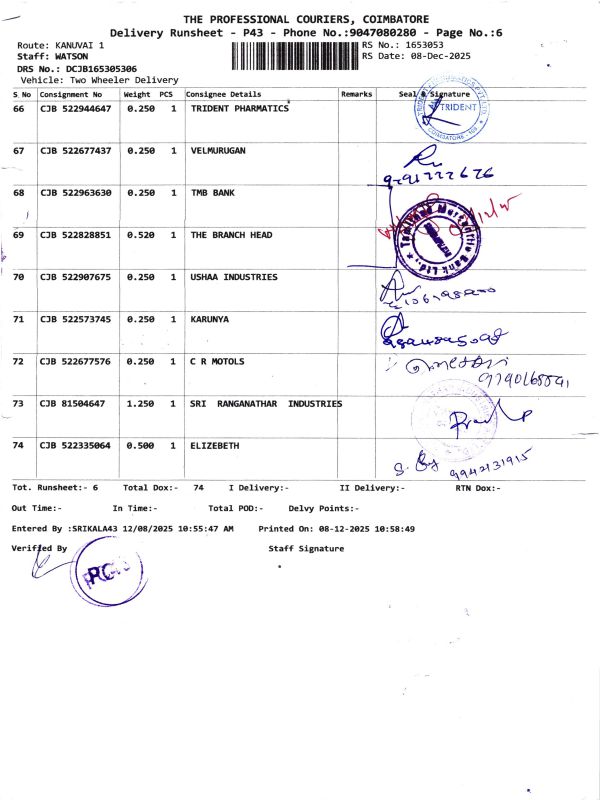 THE PROFESSIONAL COURIERS, COIMBATORE
Delivery Runsheet - P43 - Phone No.:9047080280 - Page No.:6
Route: KANUVAI 1 RS No.: 1653053
Staff: WATSON RS Date: 08-Dec-2025
DRS No.: DCJB165305306
Vehicle: Two Wheeler Delivery
S No Consignment No Weight PCS Consignee Details Remarks Seal & Signature
66 CJB 522944647 0.250 1 TRIDENT PHARMATICS TRIDENT
67 CJB 522677437 0.250 1 VELMURUGAN
68 CJB 522963630 0.250 1 TMB BANK
69 CJB 522828851 0.520 1 THE BRANCH HEAD
70 CJB 522907675 0.250 1 USHAA INDUSTRIES
71 CJB 522573745 0.250 1 KARUNYA
72 CJB 522677576 0.250 1 C R MOTOLS
73 CJB 81504647 1.250 1 SRI RANGANATHAR INDUSTRIES
74 CJB 522335064 0.500 1 ELIZEBETH
9942131915
Tot. Runsheet:- 6 Total Dox:- 74 I Delivery:- II Delivery:- RTN Dox:-
Out Time:- In Time:- Total POD:- Delvy Points:-
Entered By :SRIKALA43 12/08/2025 10:55:47 AM Printed On: 08-12-2025 10:58:49
Verified By Staff Signature